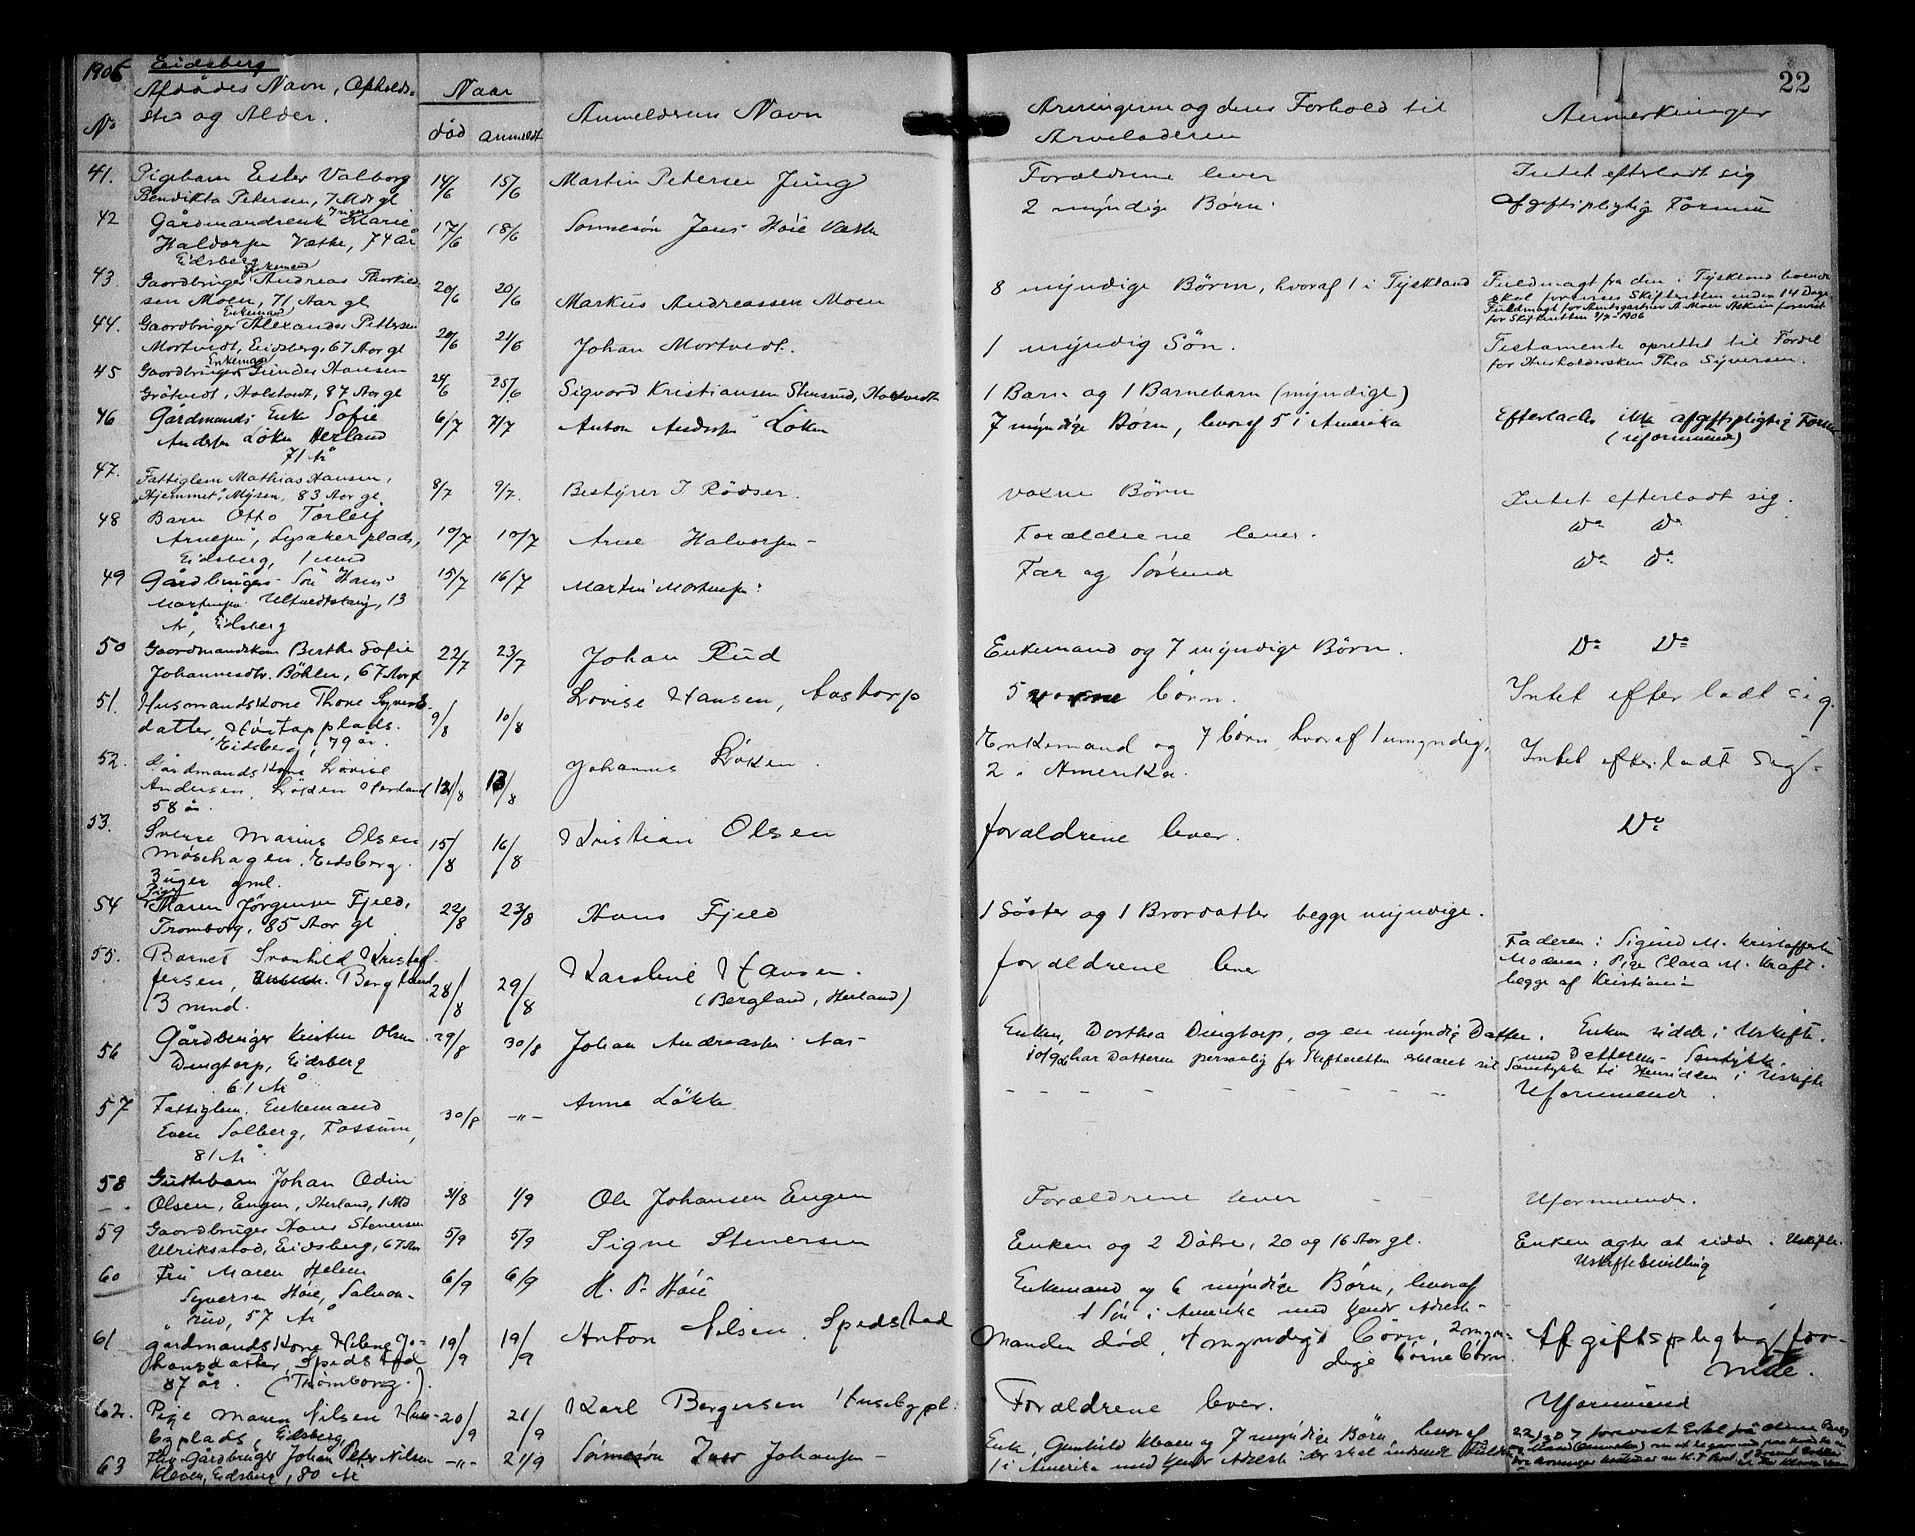 1906 Eidsberg
22
Afdødes Navn, Opholds-
sted og Alder.
Naar
No
død anmeldt
Anmelderens Navn
Arvingerne og deres Forhold til
Arveladeren
Anmerkninger
41. Pigebarn Ester Valborg
Bendikta Petersen, 7 Mdr gl
14/6 15/6 Martin Petersen Jüng
Forældrene lever
Intet efterladt sig
42 Gårdmandsenke Inger Marie
Haldorsen Væthe, 74 år
Eidsberg
17/6 18/6 Sønnesøn Jens Høie Væthe
2 myndige Børn.
Afgiftspligtig Formue
43. Gaardbruger Enkemand Andreas Thorkild-
sen Moen, 71 Aar gl
20/6 20/6 Markus Andreassen Moen
8 myndige Børn, hvoraf 1 i Tyskland
Fuldmagt fra den i Tyskland boende
skal forevises Skifteretten inden 14 Dage
for Skifteretten 9/7-1906
44. Gaardbruger Enkemand Alexander Pettersen
Mortvedt, Eidsberg, 67 Aar gl
20/6 21/6 Johan Mortvedt.
1 myndig Søn.
Testamente oprettet til Fordel
for Husholdersken Thea Syversen.
45 Gaardbruger Enkemand Gunder Hansen
Gråtvedt, Halstvedt, 87 Aar gl
24/6 25/6 Sigvard Kristiansen Stensrud, Halstvedt
1 Barn og 1 Barnebarn (myndige)
46 Gårdmands Enke Sofie
Andersen Løken Herland
71 År
6/7 7/7 Anton Andersen Løken
7 myndige Børn, hvoraf 5 i Amerika
Efterlader ikke afgiftspligtig Formue
(uformuende)
47. Fattiglem Mathias Hansen,
"Hjemmet", Mysen, 83 Aar gl.
8/7 9/7. Bestyrer J. Rødser.
voxne Børn
Intet efterladt sig.
48 Barn Otto Torleif
Arnesen, Lysaker plads,
Eidsberg, 1 mnd
10/7 10/7 Arne Halvorsen -
Forældrene lever.
Do Do
49 Gårdbrugers Søn Hans
Martinsen Ultvedtstang, 13
År, Eidsberg
15/7 16/7 Martin Mortensen:
Far og Søskende
Do Do
50 Gaardmandskone Berthe Sofie
Johannesdtr. Bøhler, 67 Aar gl
22/7 23/7 Johan Rud
Enkemand og 7 myndige Børn.
Do Do
51. Husmandskone Thone Syverts
datter, Høitap plads.
Eidsberg, 79 år.
9/8 10/8 Lovise Hansen, Aastorp
5 voxne børn.
Intet efterladt sig.
52. Gårdmandskone Lovise
Andersen, Løken Herland
58 år.
12/8 13/8 Johannes Løken.
Enkemand og 7 børn, hvoraf 1 umyndig,
2 i Amerika.
Intet efterladt sig
53. Sverre Marius Olsen
Møsehagen, Eidsberg.
3 uger gml.
15/8 16/8 Kristian Olsen
forældrene lever.
Do
54 Pige Maren Jørgensen Fjeld,
Tromborg, 85 Aar gl
22/8 23/8 Hans Fjeld
1 Søster og 1 Brordatter begge myndige.
55. Barnet Svanhild Kristof-
fersen, Bergland
3 mnd.
28/8 29/8 Karoline Hansen.
(Bergland, Herland)
forældrene lever
Faderen: Sigurd M. Kristoffersen
Moderen: Pige Clara M. Kraft.
begge af Kristiania
56 Gårdbruger Kristen Olsen
Dingtorp, Eidsberg
61 År
29/8 30/8 Johan Andreassen Aas -
Enken, Dorthea Dingtorp, og en myndig Datter.
10/9 06 har Datteren personlig for Skifteretten erklæret sit Samtykke til Hensidden i Uskifte
Enken sidder i Uskifte
med Datterens Samtykke
57 Fattiglem. Enkemand
Even Solberg, Fossum,
81 År
30/8 -"- Anne Løkke
- - - - - -
Uformuende.
58 Guttebarn Johan Odin
Olsen, Engen, Herland, 1 Md
31/8 1/9 Ole Johansen Engen
Forældrene lever
Uformuende.
59 Gaardbruger Hans Stenersen
Ulriksstad, Eidsberg, 67 Aar
5/9 5/9 Signe Stenersen
Enken og 2 Døtre, 20 og 16 Aar gl.
Enken agter at sidde i Uskifte.
Uskiftebevilling
60 Fru Maren Helene
Syversen Høie, Salmon-
rud, 57 År
6/9 6/9 H. P. Høie
Enkemand og 6 myndige Børn, hvoraf
1 Søn i Amerika med kjendt Adresse -
61 gårdmandskone Helene Jo-
hansdatter, Spedstad
87 år. (Trømborg.)
19/9 19/9 Anton Nilsen. Spedstad
Manden død, 4 myndige børn, 2 myn-
dige børnebørn.
Afgiftspligtig for-
mue.
62. Pige Maren Nilsen Huse-
byplads, Eidsberg
20/9 21/9 Karl Bergersen Husebypl.
Forældrene lever.
Uformuend
63 Fhv. Gårdbruger Johan Peter Nilsen
Kleven, Eidsberg, 80 År
-"- 21/9 Sønnesøn Iver Johansen -
Enke, Gunhild Kleven og 7 myndige Børn, hvoraf
1 i Amerika med kjendt Adresse